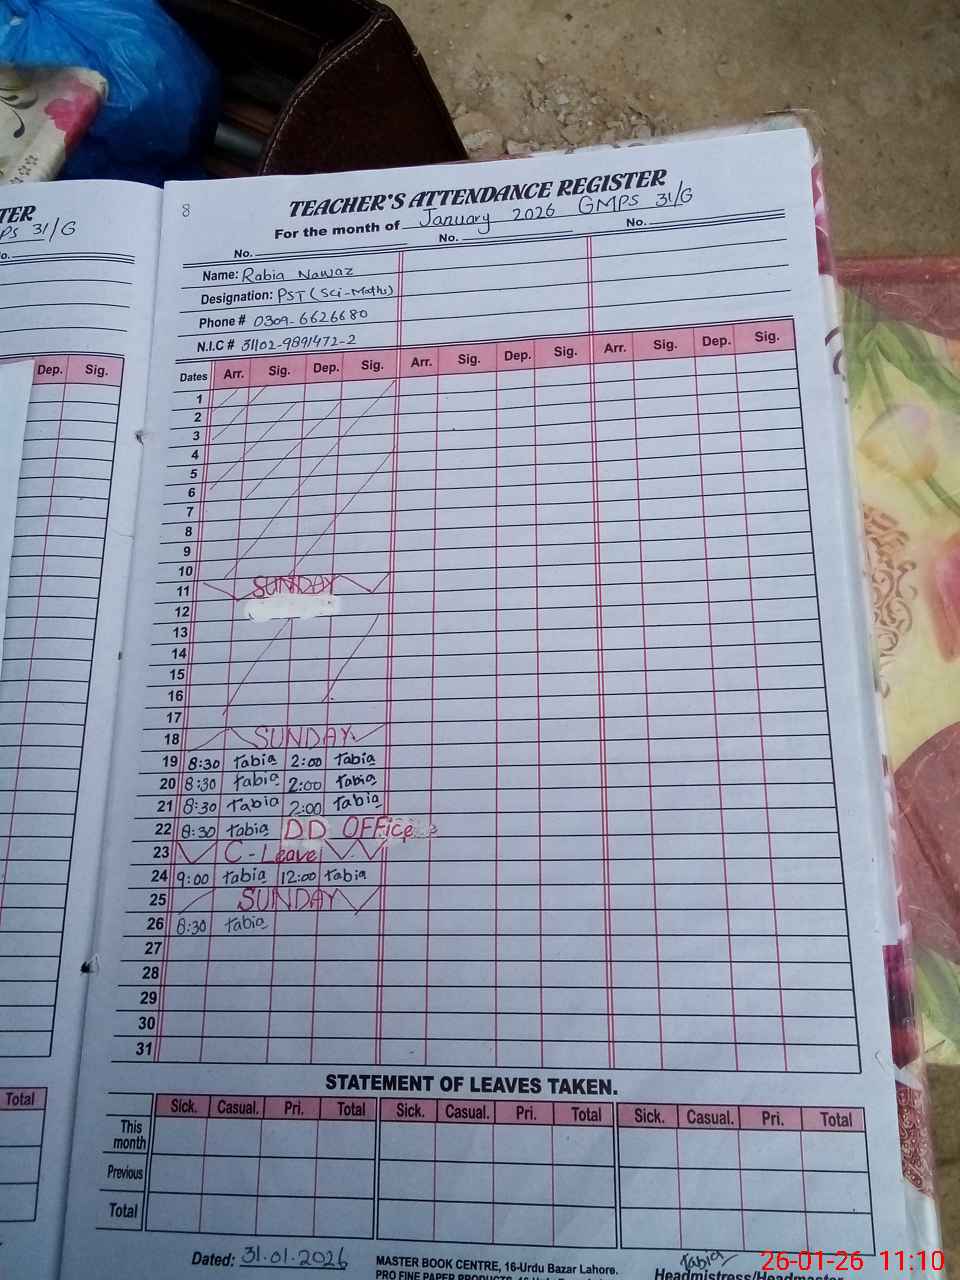 TER
PS 31/G
o.
Dep. Sig.
Total
8
TEACHER'S ATTENDANCE REGISTER
For the month of January 2026 GMPS 31/G
No. No. No.
Name: Rabia Nawaz
Designation: PST (Sci-Maths)
Phone # 0309-6626680
N.I.C # 31102-9891472-2
Dates Arr. Sig. Dep. Sig. Arr. Sig. Dep. Sig. Arr. Sig. Dep. Sig.
1
2
3
4
5
6
7
8
9
10
11 SUNDAY
12
13
14
15
16
17
18 SUNDAY
19 8:30 rabia 2:00 rabia
20 8:30 rabia 2:00 rabia
21 8:30 rabia 2:00 rabia
22 8:30 rabia DD OFFice
23 C-Leave
24 9:00 rabia 12:00 rabia
25 SUNDAY
26 8:30 rabia
27
28
29
30
31
STATEMENT OF LEAVES TAKEN.
Sick. Casual. Pri. Total Sick. Casual. Pri. Total Sick. Casual. Pri. Total
This month
Previous
Total
Dated: 31.01.2026
MASTER BOOK CENTRE, 16-Urdu Bazar Lahore.
rabia
Headmistress/Headmaster
26-01-26 11:10